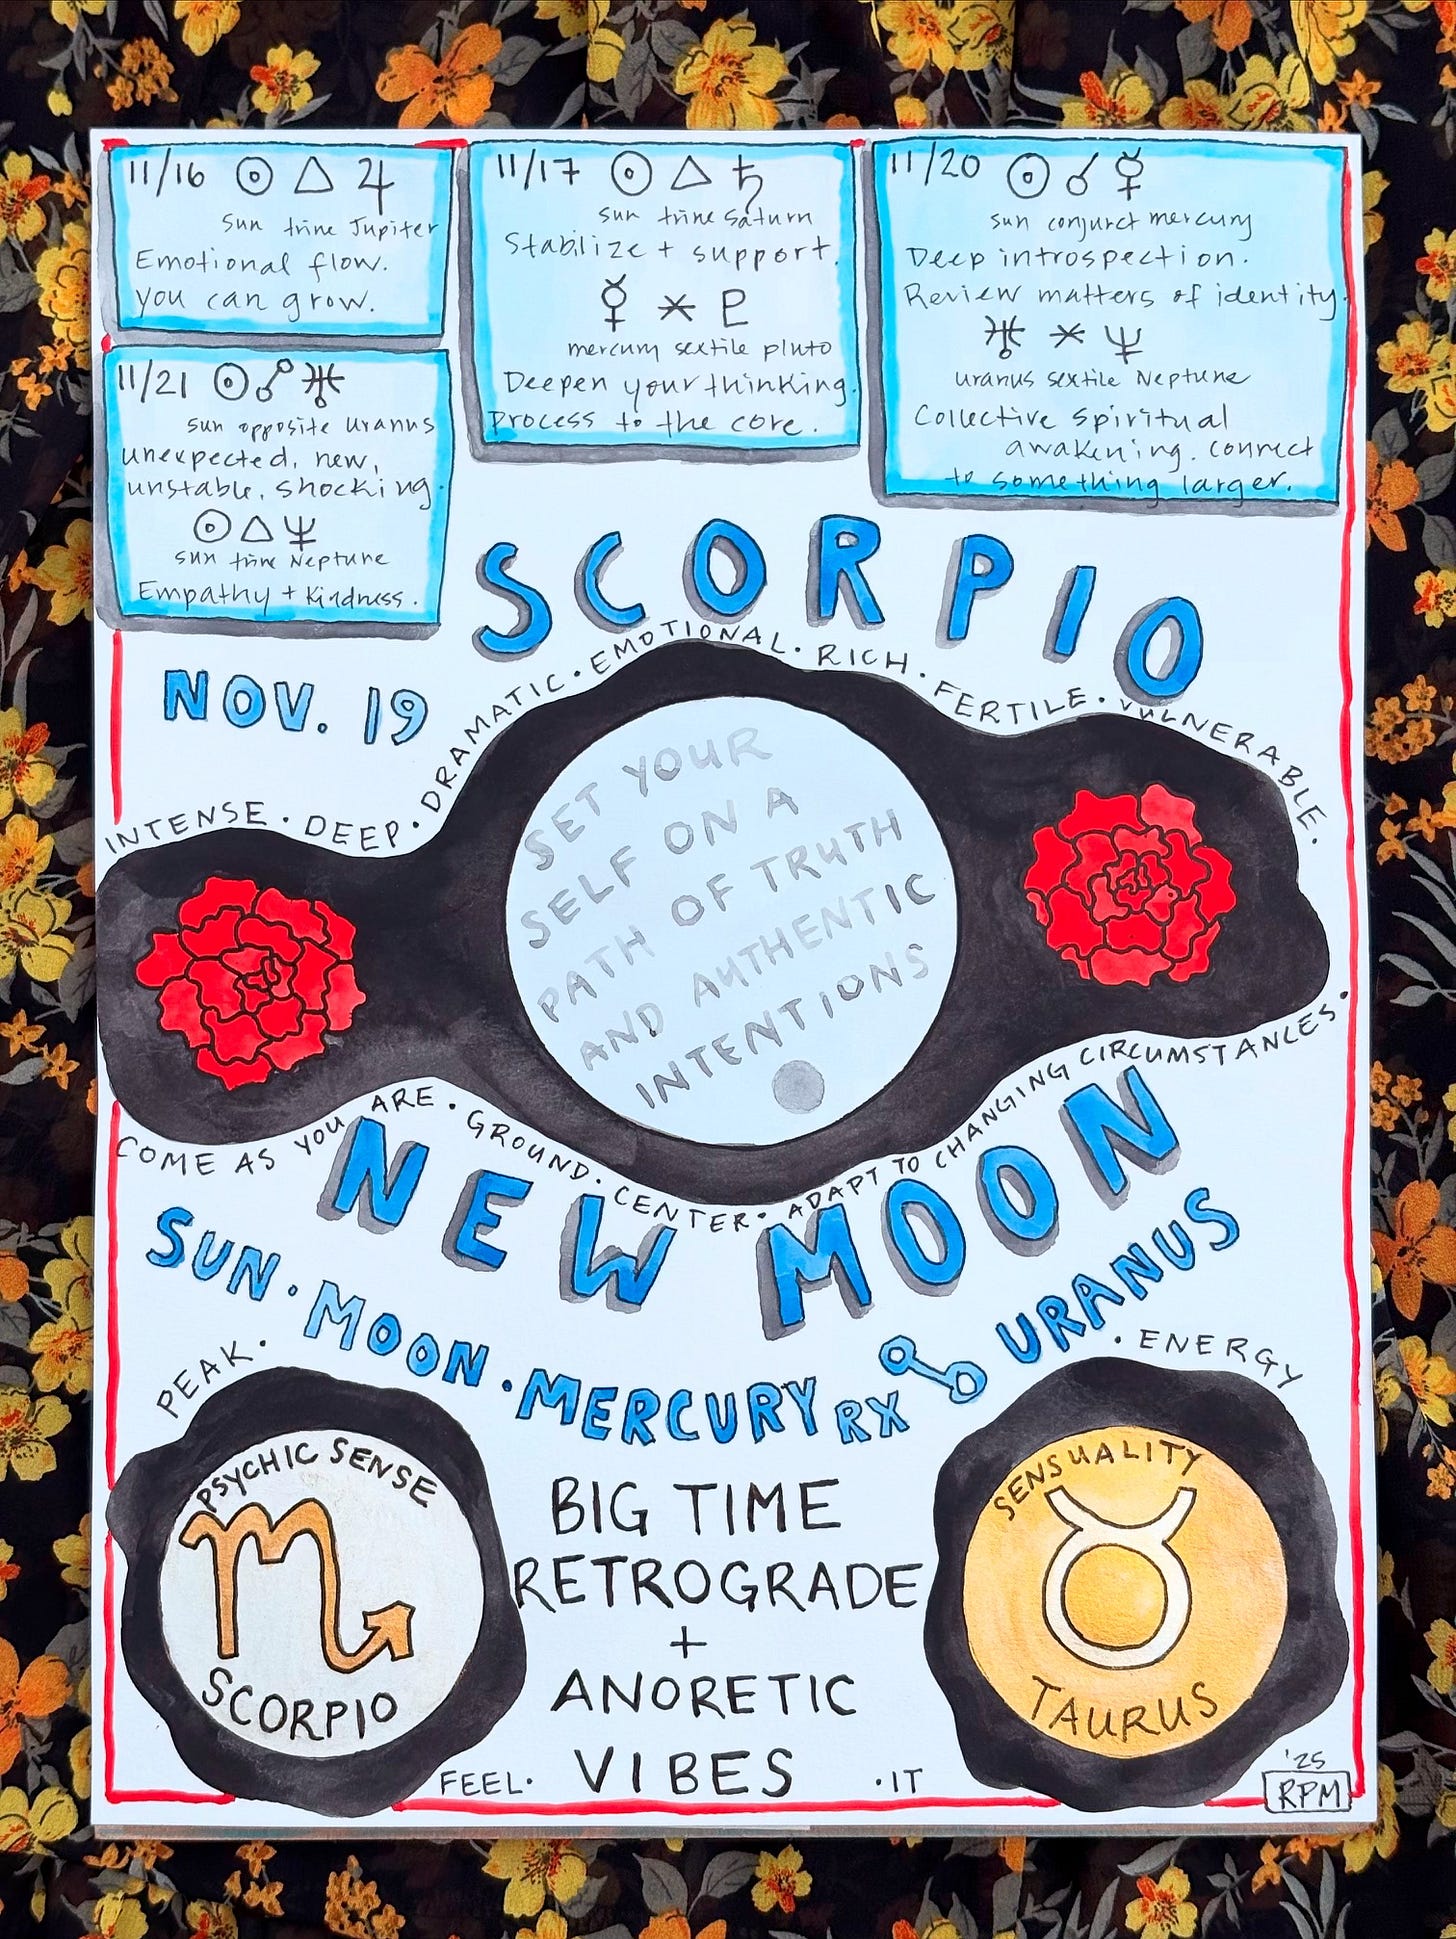 11/16 ☉ △ ♃
sun trine Jupiter
Emotional flow.
you can grow.
11/17 ☉ △ ♄
sun trine saturn
Stabilize + support.
☿ ⚹ ♇
mercury sextile pluto
Deepen your thinking.
Process to the core.
11/20 ☉ ☌ ☿
sun conjunct mercury
Deep introspection.
Review matters of identity.
♅ ⚹ ♆
uranus sextile Neptune
Collective spiritual
awakening. connect
to something larger.
11/21 ☉ ☍ ♅
sun opposite uranus
unexpected, new,
unstable, shocking.
☉ △ ♆
sun trine Neptune
Empathy + kindness.
SCORPIO
NOV. 19
INTENSE · DEEP · DRAMATIC · EMOTIONAL · RICH · FERTILE · VULNERABLE ·
SET YOUR
SELF ON A
PATH OF TRUTH
AND AUTHENTIC
INTENTIONS
COME AS YOU ARE · GROUND · CENTER · ADAPT TO CHANGING CIRCUMSTANCES ·
NEW MOON
SUN · MOON · MERCURY RX ☍ URANUS
PEAK ·
· ENERGY
PSYCHIC SENSE
♏
SCORPIO
BIG TIME
RETROGRADE
+
ANORETIC
VIBES
SENSUALITY
♉
TAURUS
FEEL ·
· IT
'25
RPM